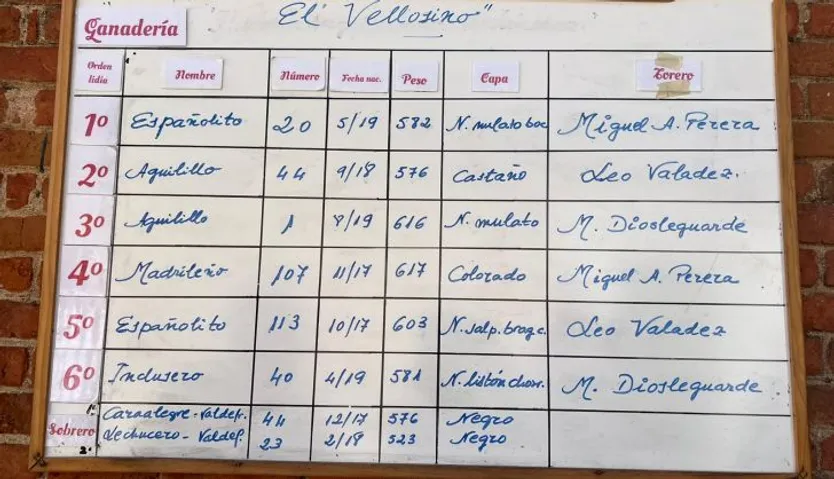 Ganadería El Vellosino"
Orden lidia Nombre Número Fecha nac. Peso Capa Torero
1º Españolito 20 5/19 582 N. mulato boc Miguel A. Perera
2º Aguilillo 44 9/18 576 Castaño Leo Valadez.
3º Aguilillo 1 8/19 616 N. mulato M. Diosleguarde
4º Madrileño 107 11/17 617 Colorado Miguel A. Perera
5º Españolito 113 10/17 603 N. salp. brag c. Leo Valadez
6º Inclusero 40 4/19 581 N. listón chorr. M. Diosleguarde
Sobrero 1º Carnalegre - Valdefr. 44 12/17 576 Negro
2º Lechucero - Valdef. 23 2/18 523 Negro